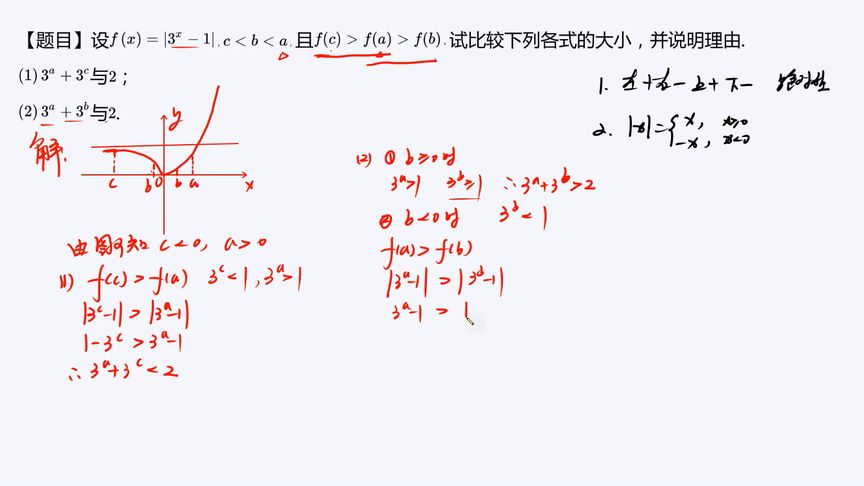 【题目】设f(x)=|3ˣ−1|,c<b<a,且f(c)>f(a)>f(b).试比较下列各式的大小，并说明理由.
(1) 3ᵃ+3ᶜ与2；
(2) 3ᵃ+3ᵇ与2.
解.
y
c b 0 b a x
由图可知 c<0, a>0
(1) f(c)>f(a) 3ᶜ<1, 3ᵃ>1
|3ᶜ-1|>|3ᵃ-1|
1-3ᶜ>3ᵃ-1
∴3ᵃ+3ᶜ<2
(2) ① b≥0时
3ᵃ>1 3ᵇ≥1 ∴3ᵃ+3ᵇ>2
② b<0时 3ᵇ<1
f(a)>f(b)
|3ᵃ-1|>|3ᵇ-1|
3ᵃ-1 > 1
1. 左+右- 上+下- 绝对值
2. |x|={x, x≥0
-x, x<0